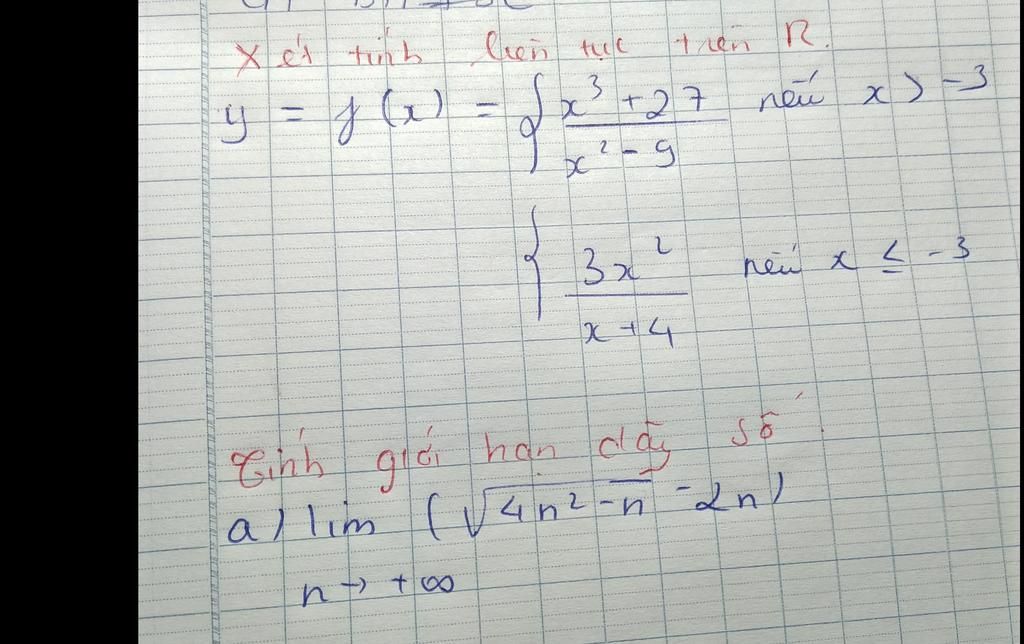 Xét tính liên tục trên R.
y = f(x) = { x³ + 27 nếu x > -3
x² - 9
{ 3x² nếu x ≤ -3
x + 4
Tính giới hạn dãy số.
a) lim (√4n² - n - 2n)
n → +∞